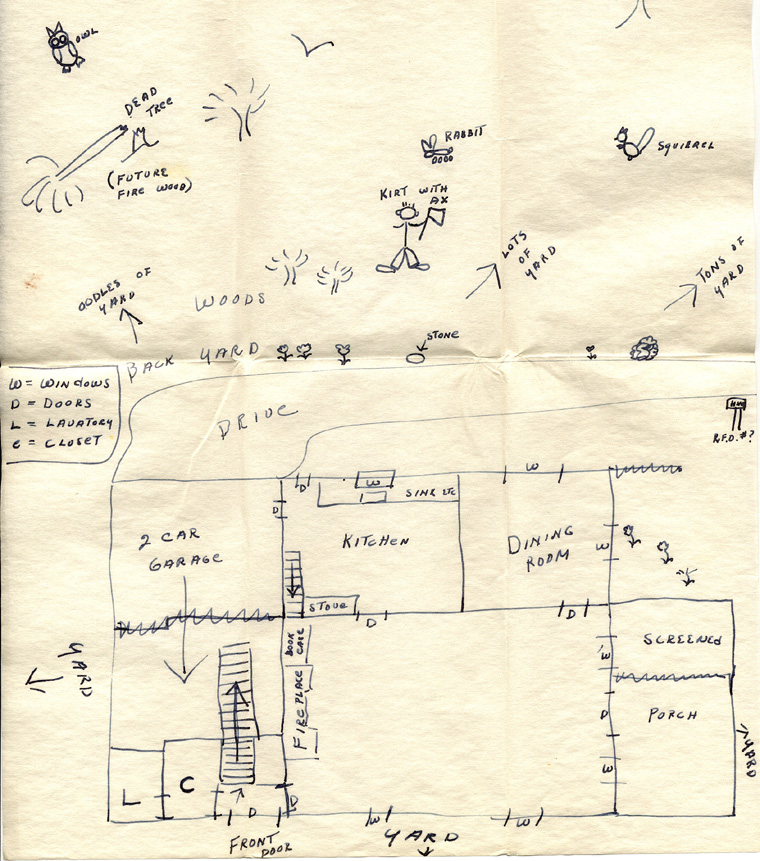 OWL
DEAD
TREE
(FUTURE
FIRE WOOD)
RABBIT
SQUIRREL
KIRT WITH
AX
LOTS
OF
YARD
TONS OF
YARD
OODLES OF
YARD
WOODS
STONE
BACK YARD
W = WINDOWS
D = DOORS
L = LAVATORY
C = CLOSET
DRIVE
R.F.D. #?
D
W
W
SINK ETC
D
2 CAR
GARAGE
KITCHEN
DINING
ROOM
W
STOVE
D
D
BOOK
CASE
SCREENED
W
YARD
FIRE PLACE
D
PORCH
YARD
W
L
C
D
D
W
W
FRONT
DOOR
YARD